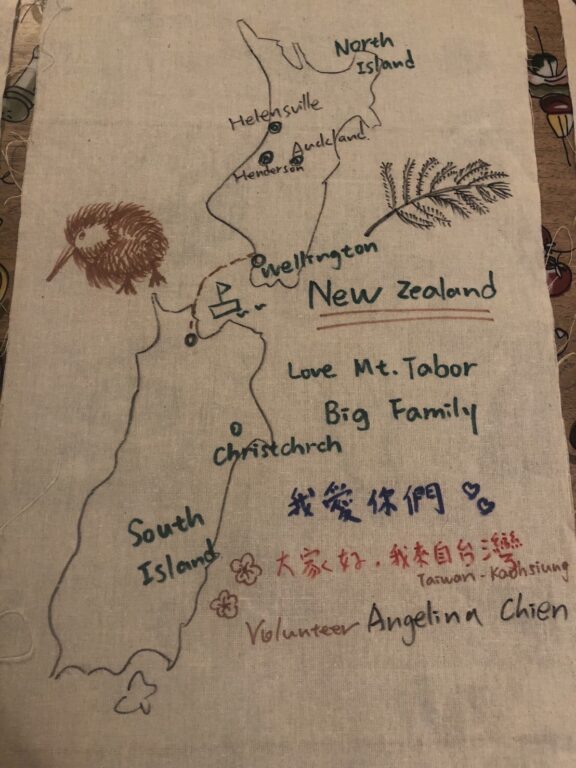 North
Island
Helensville
Auckland
Henderson
Wellington
New Zealand
Love Mt. Tabor
Big Family
Christchrch
我愛你們
South
Island
大家好，我來自台灣
Taiwan - Kaohsiung
Volunteer Angelina Chien